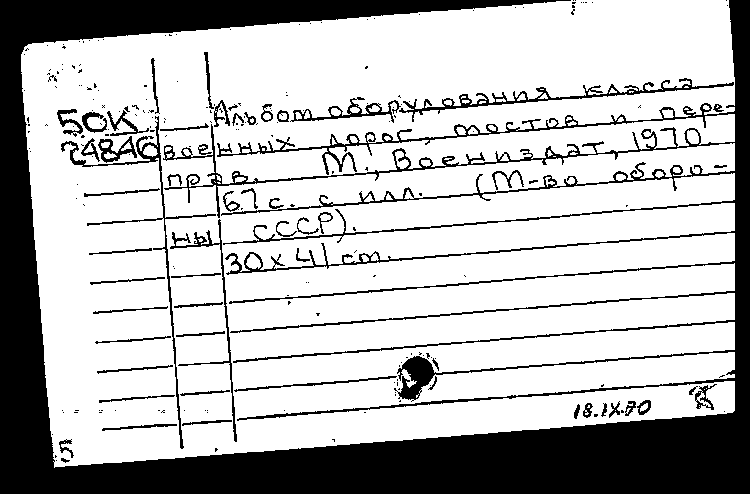 Альбом оборудования класса
50К
24840 военных дорог, мостов и пере-
прав. М., Воениздат, 1970.
67 с. с илл. (М-во оборо-
ны СССР).
30 х 41 cm.
18.IX.70
5